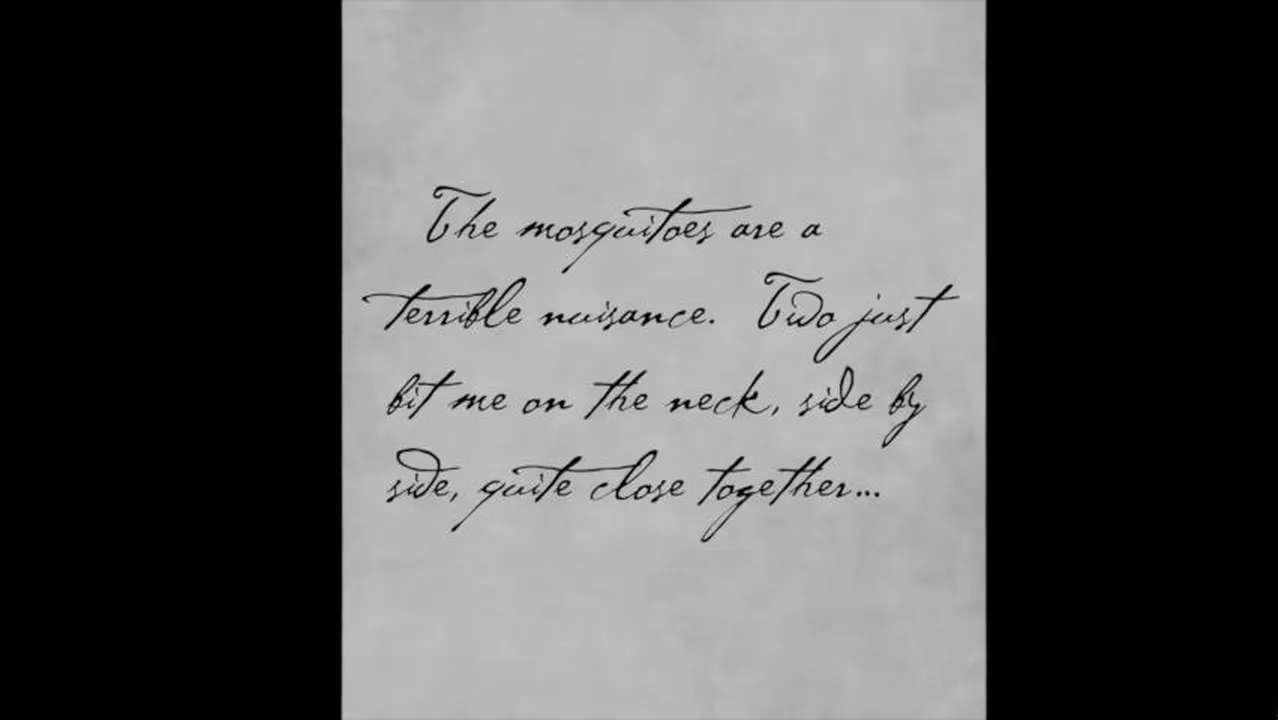 The mosquitoes are a
terrible nuisance. Two just
bit me on the neck, side by
side, quite close together...